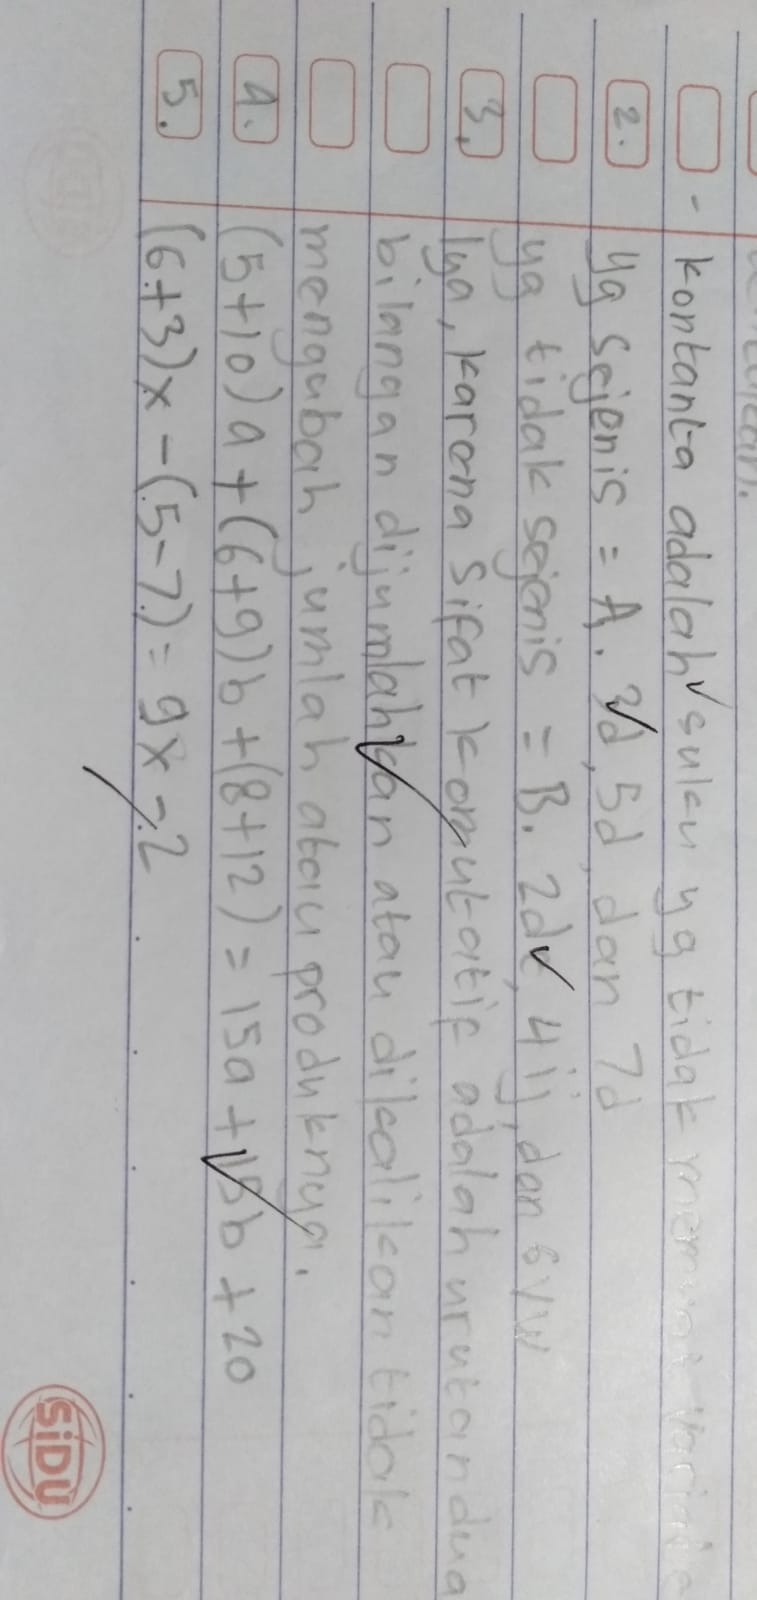 - kontanta adalah suku yg tidak
2. yg sejenis = A. 3d, 5d, dan 7d
yg tidak sejenis = B. 2de, 4ij, dan 6vw
3. Iya, karena Sifat komutatif adalah urutan dua
bilangan dijumlahkan atau dikalikan tidak
mengubah jumlah atau produknya.
4. (5+10)a+(6+9)b+(8+12)=15a+15b+20
5. (6+3)x-(5-7)=9x-2
SiDU